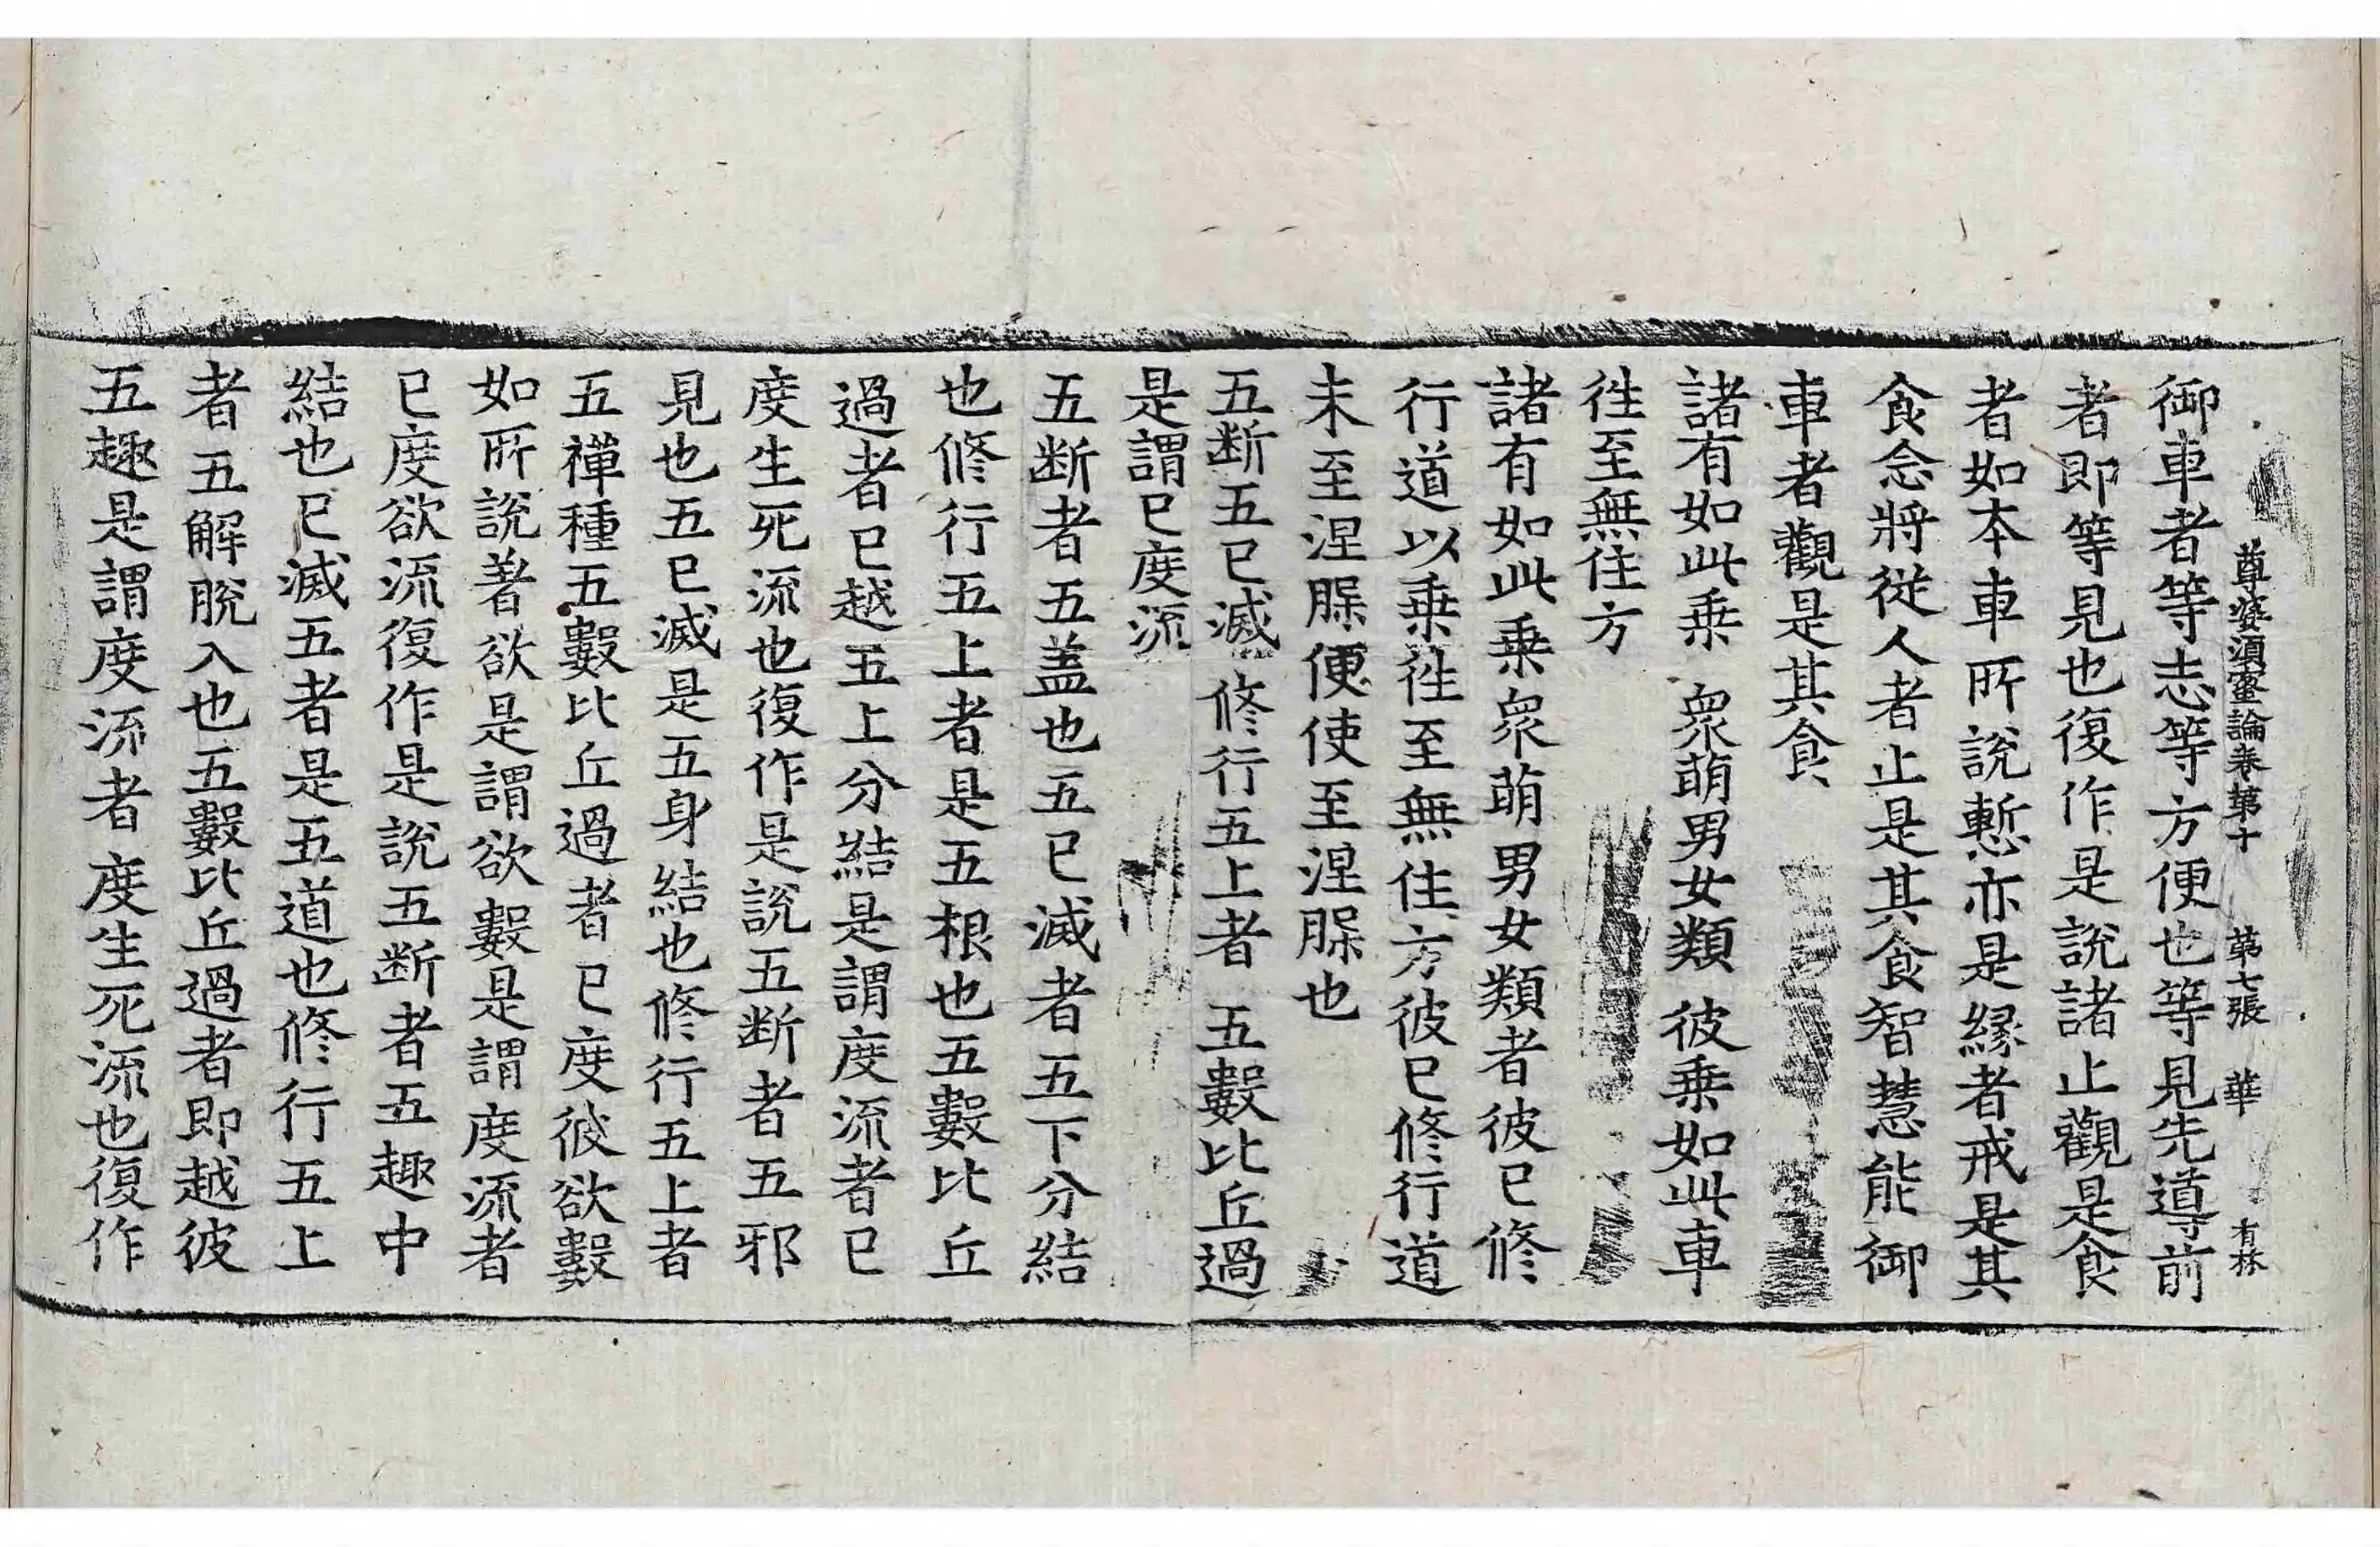 尊婆須蜜論卷第十 第七張 華 有林
御車者等志等方便也等見先導前
者即等見也復作是說諸止觀是食
者如本車所說慙亦是緣者戒是其
食念將從人者止是其食智慧能御
車者觀是其食
諸有如此乗 衆萌男女類 彼乗如此車
徃至無住方
諸有如此乗衆萌男女類者彼已修
行道以乗徃至無住方彼已修行道
未至涅槃便使至涅槃也
五断五已滅 修行五上者 五數比丘過
是謂已度流
五断者五盖也五已滅者五下分結
也修行五上者是五根也五數比丘
過者已越五上分結是謂度流者已
度生死流也復作是說五断者五邪
見也五已滅是五身結也修行五上者
五禪種五數比丘過者已度彼欲數
如所說著欲是謂欲數是謂度流者
已度欲流復作是說五断者五趣中
結也已滅五者是五道也修行五上
者五解脫入也五數比丘過者即越彼
五趣是謂度流者度生死流也復作